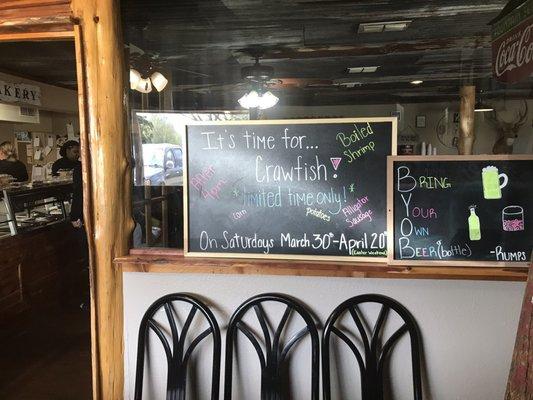 AKERY
It's time for...
Crawfish!
*limited time only!*
Boiled
Shrimp
After
4pm
corn
potatoes
Alligator
Sausage
On Saturdays March 30th-April 20th
(Easter Weekend)
Bring
Your
Own
Beer (bottle)
-Rumps
Coca-Cola